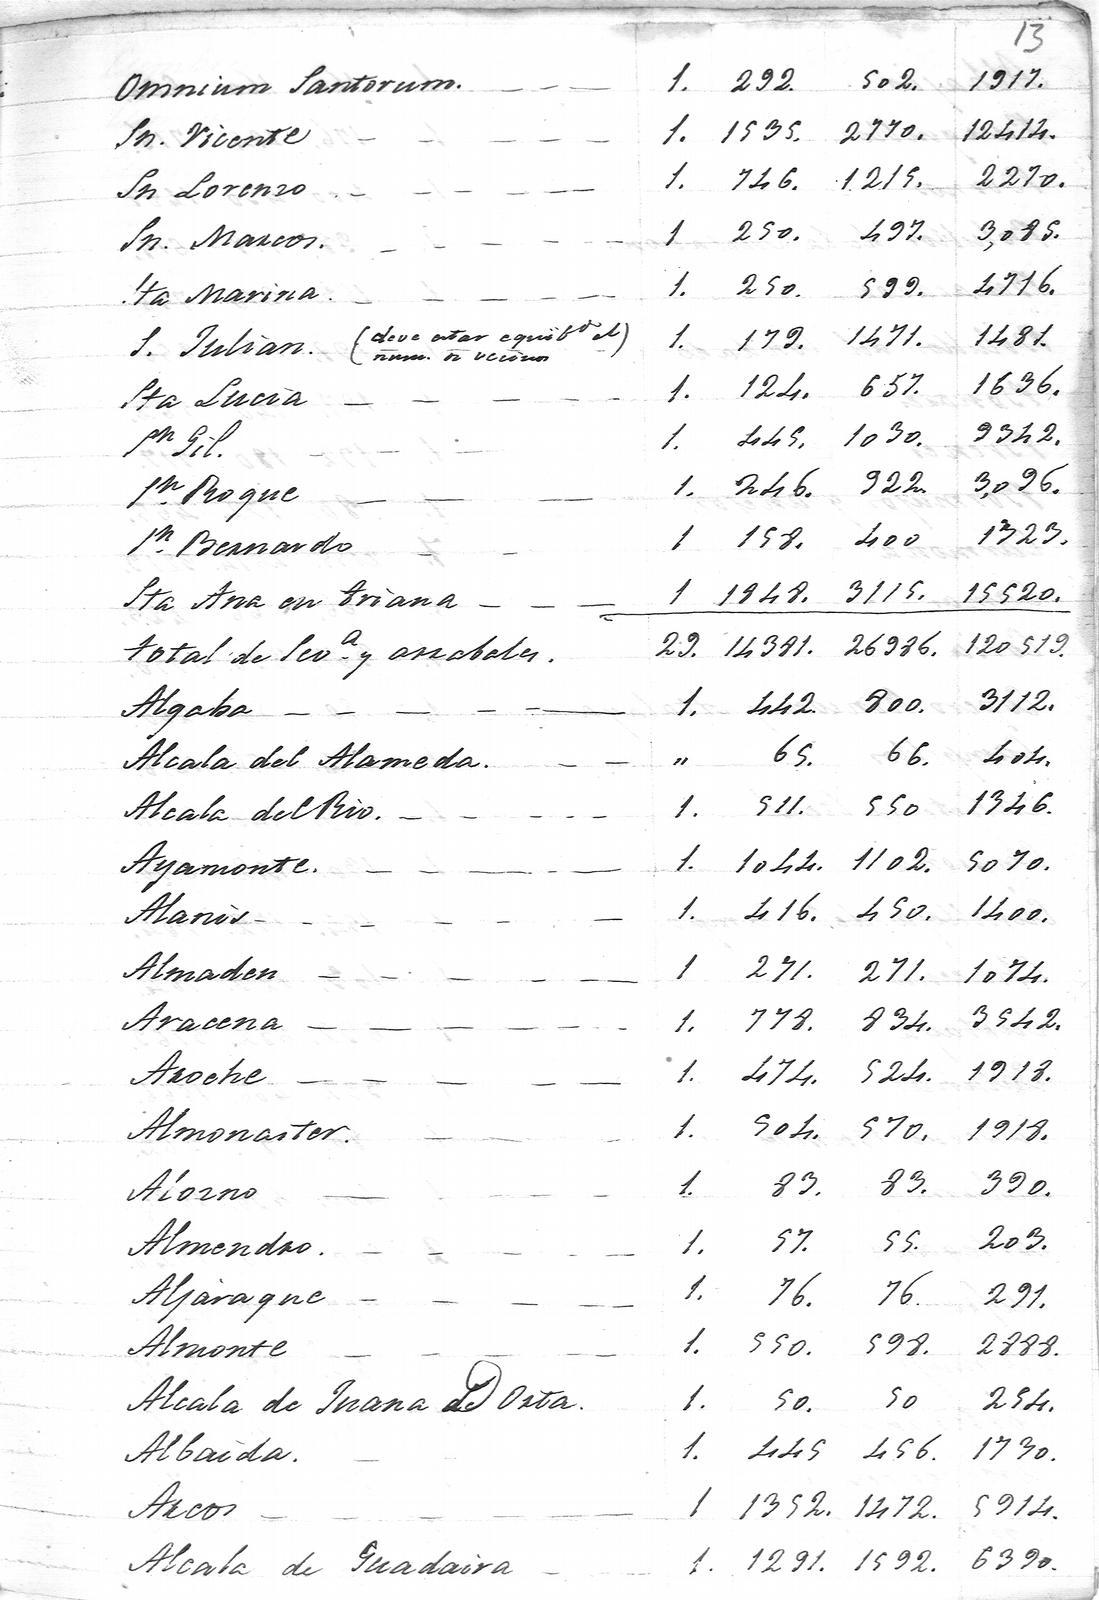 13
Omnium Santorum. 1. 292. 502. 1917.
Sn. Vicente 1. 1535. 2770. 12414.
Sn Lorenzo 1. 746. 1215. 2270.
Sn. Marcos. 1 250. 497. 3,085.
Sta Marina. 1. 250. 599. 4716.
S. Julian. (deve estar equibdo el 1. 179. 1471. 1481.
num. de vecinos)
Sta Lucia 1. 124. 657. 1636.
Sn Gil. 1. 445. 1030. 9342.
Sn Roque 1. 246. 922. 3,096.
Sn. Bernardo 1 158. 400 1323.
Sta Ana en triana 1 1848. 3115. 15520.
total de Seva. y arrabales. 29. 14381. 26986. 120519.
Algaba 1. 442. 800. 3112.
Alcala del Alameda. " 65. 66. 404.
Alcala del Rio. 1. 511. 550 1346.
Ayamonte. 1. 1044. 1102. 5070.
Alanis 1. 416. 450. 1400.
Almaden 1 271. 271. 1074.
Aracena 1. 778. 834. 3542.
Aroche 1. 474. 524. 1918.
Almonaster. 1. 504. 570. 1918.
Alozno 1. 83. 83. 390.
Almendro. 1. 57. 55. 203.
Aljaraque 1. 76. 76. 291.
Almonte 1. 550. 598. 2888.
Alcala de Juana de Orta. 1. 50. 50 254.
Albaida. 1. 445 456. 1730.
Arcos 1 1352. 1472. 5914.
Alcala de Guadaira 1. 1291. 1592. 6390.